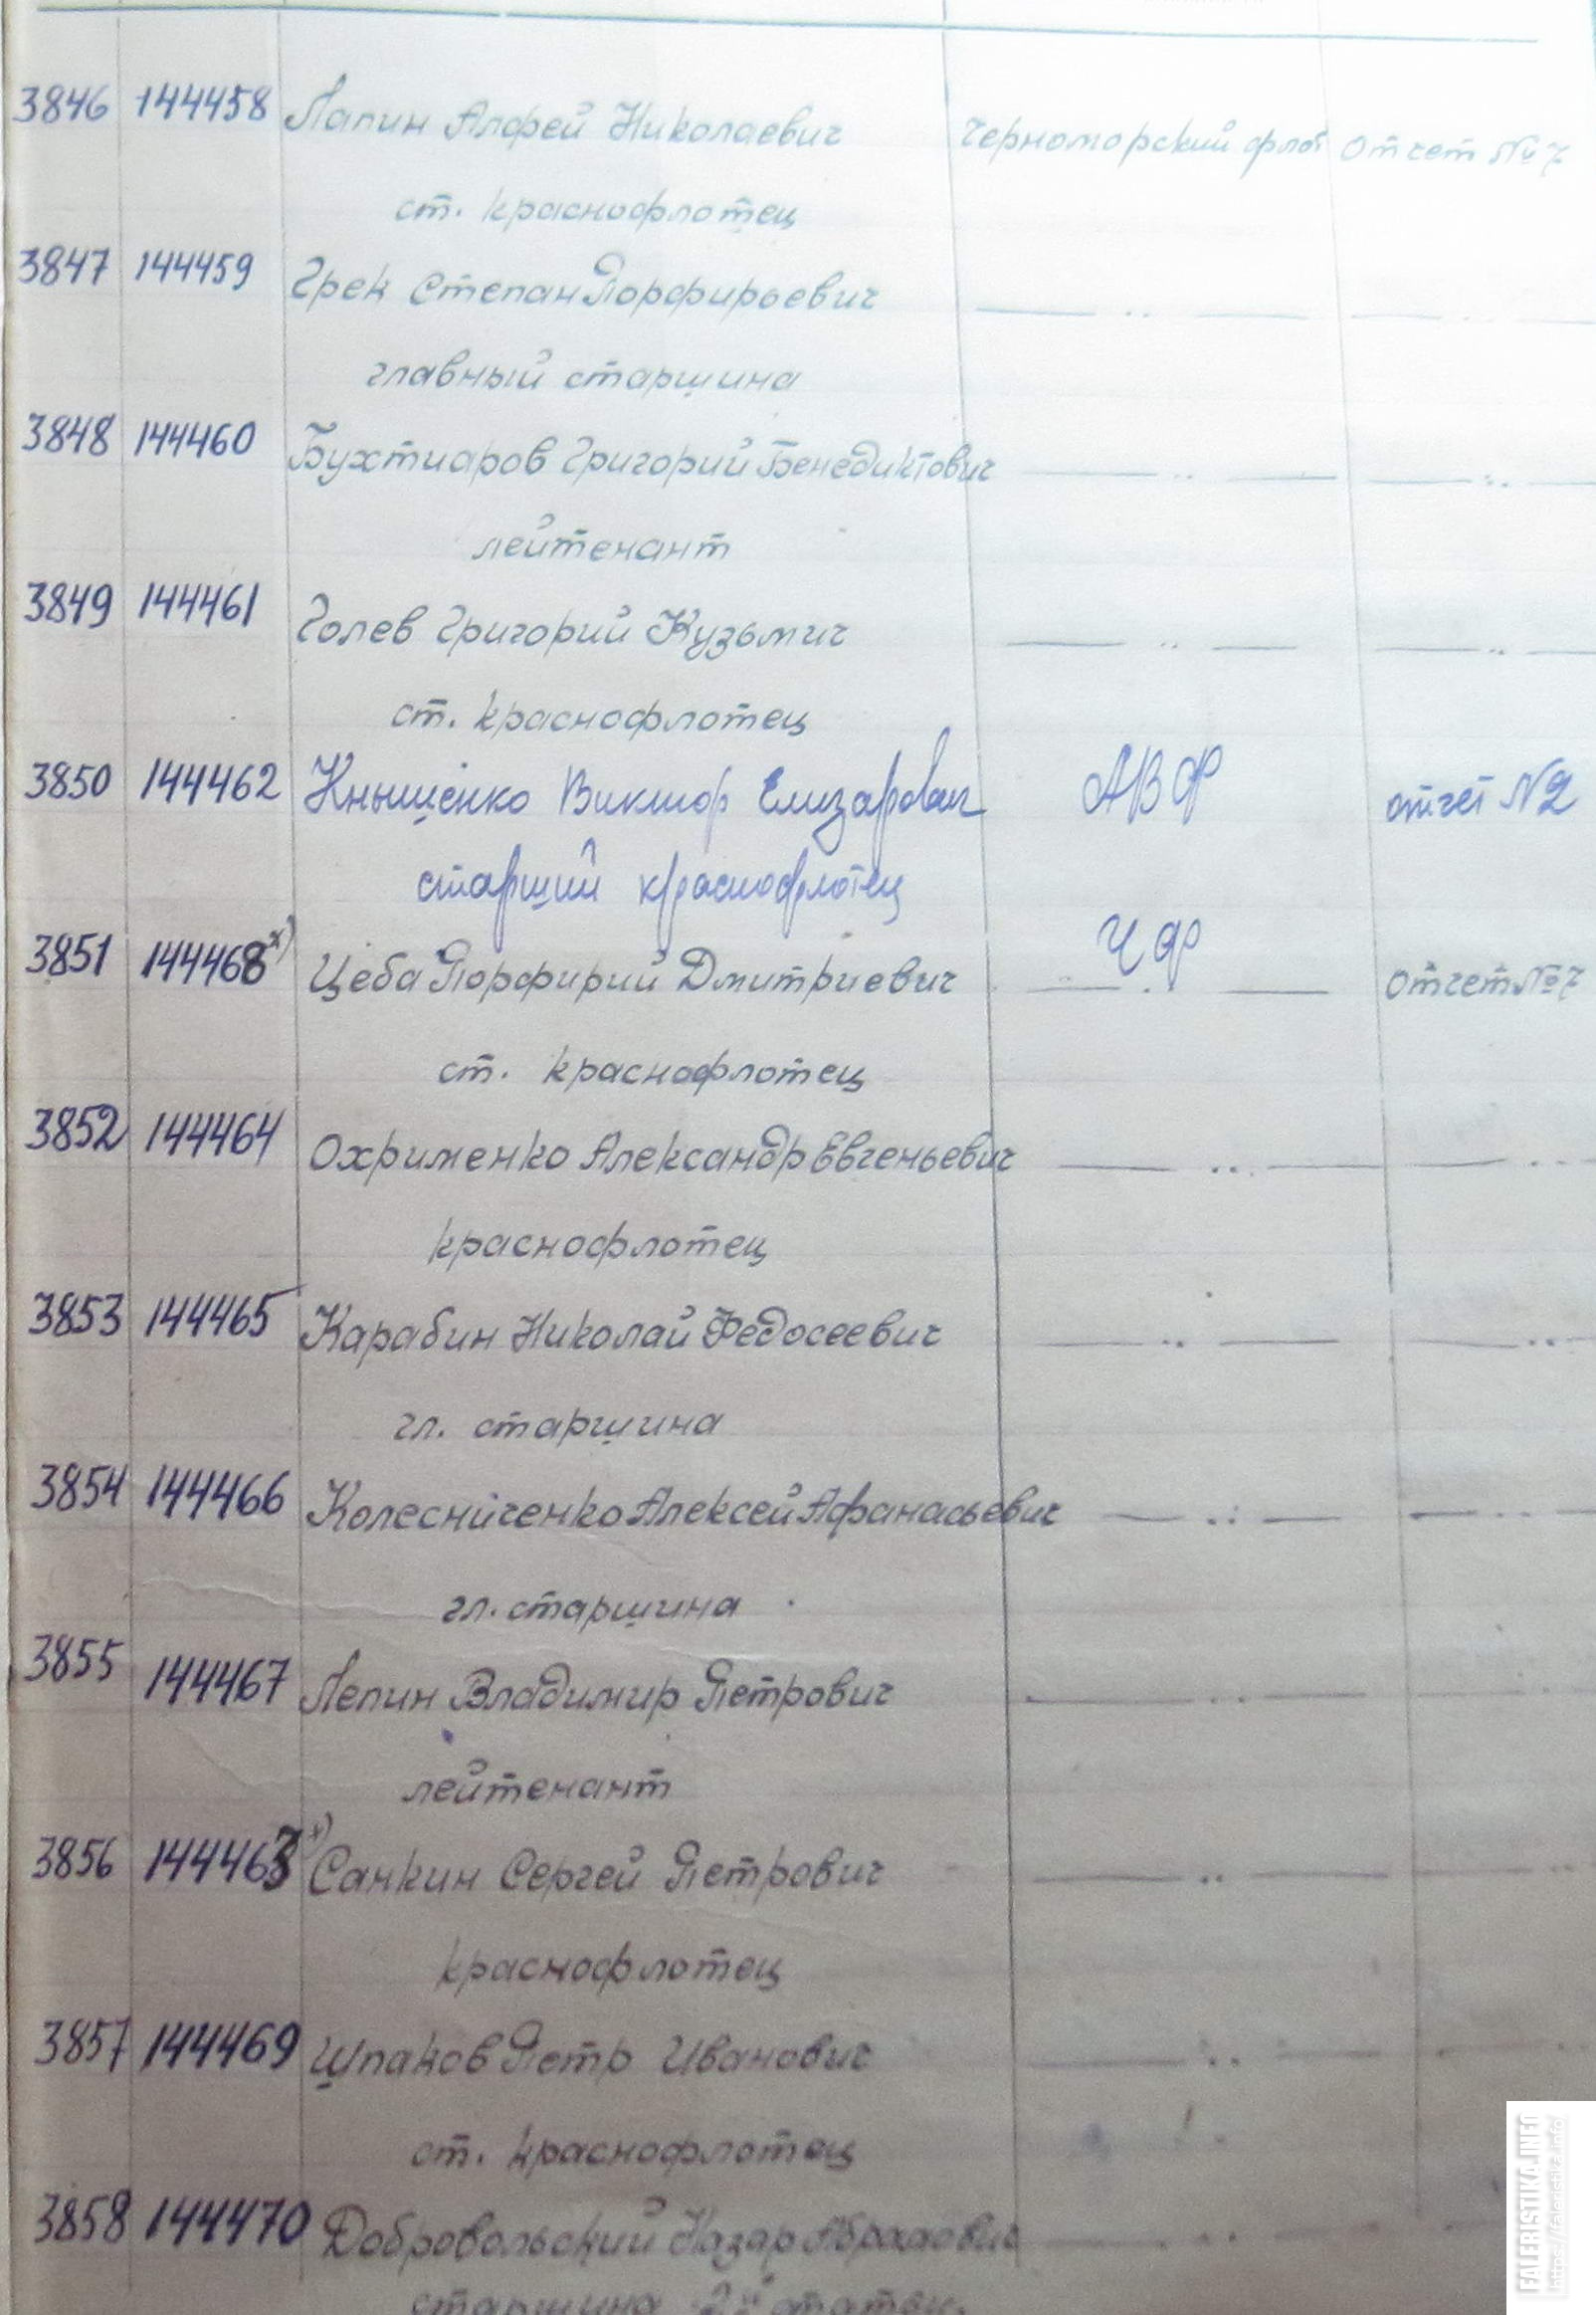 3846 144458 Лапин Алфей Николаевич Черноморский флот Отчет № 7
ст. краснофлотец
3847 144459 Грек Степан Порфирьевич — " — — " —
главный старшина
3848 144460 Бухтиаров Григорий Бенедиктович — " — — " —
лейтенант
3849 144461 Голев Григорий Кузьмич — " — — " —
ст. краснофлотец
3850 144462 Кнышенко Виктор Елизарович АВФ отчет N2
старший краснофлотец
3851 144468 х) Цеба Порфирий Дмитриевич ЧФ Отчет № 7
ст. краснофлотец
3852 144464 Охрименко Александр Евгеньевич — " — — " —
краснофлотец
3853 144465 Карабин Николай Федосеевич — " — — " —
гл. старшина
3854 144466 Колесниченко Алексей Афанасьевич — " — — " —
гл. старшина
3855 144467 Лепин Владимир Петрович — " — — " —
лейтенант
3856 144463 х) Санкин Сергей Петрович — " — — " —
краснофлотец
3857 144469 Шпаков Петр Иванович — " — — " —
ст. краснофлотец
3858 144470 Добровольский Назар Абрамович — " — — " —
старшина 2й статьи
FALERISTIKA.INFO
https://faleristika.info